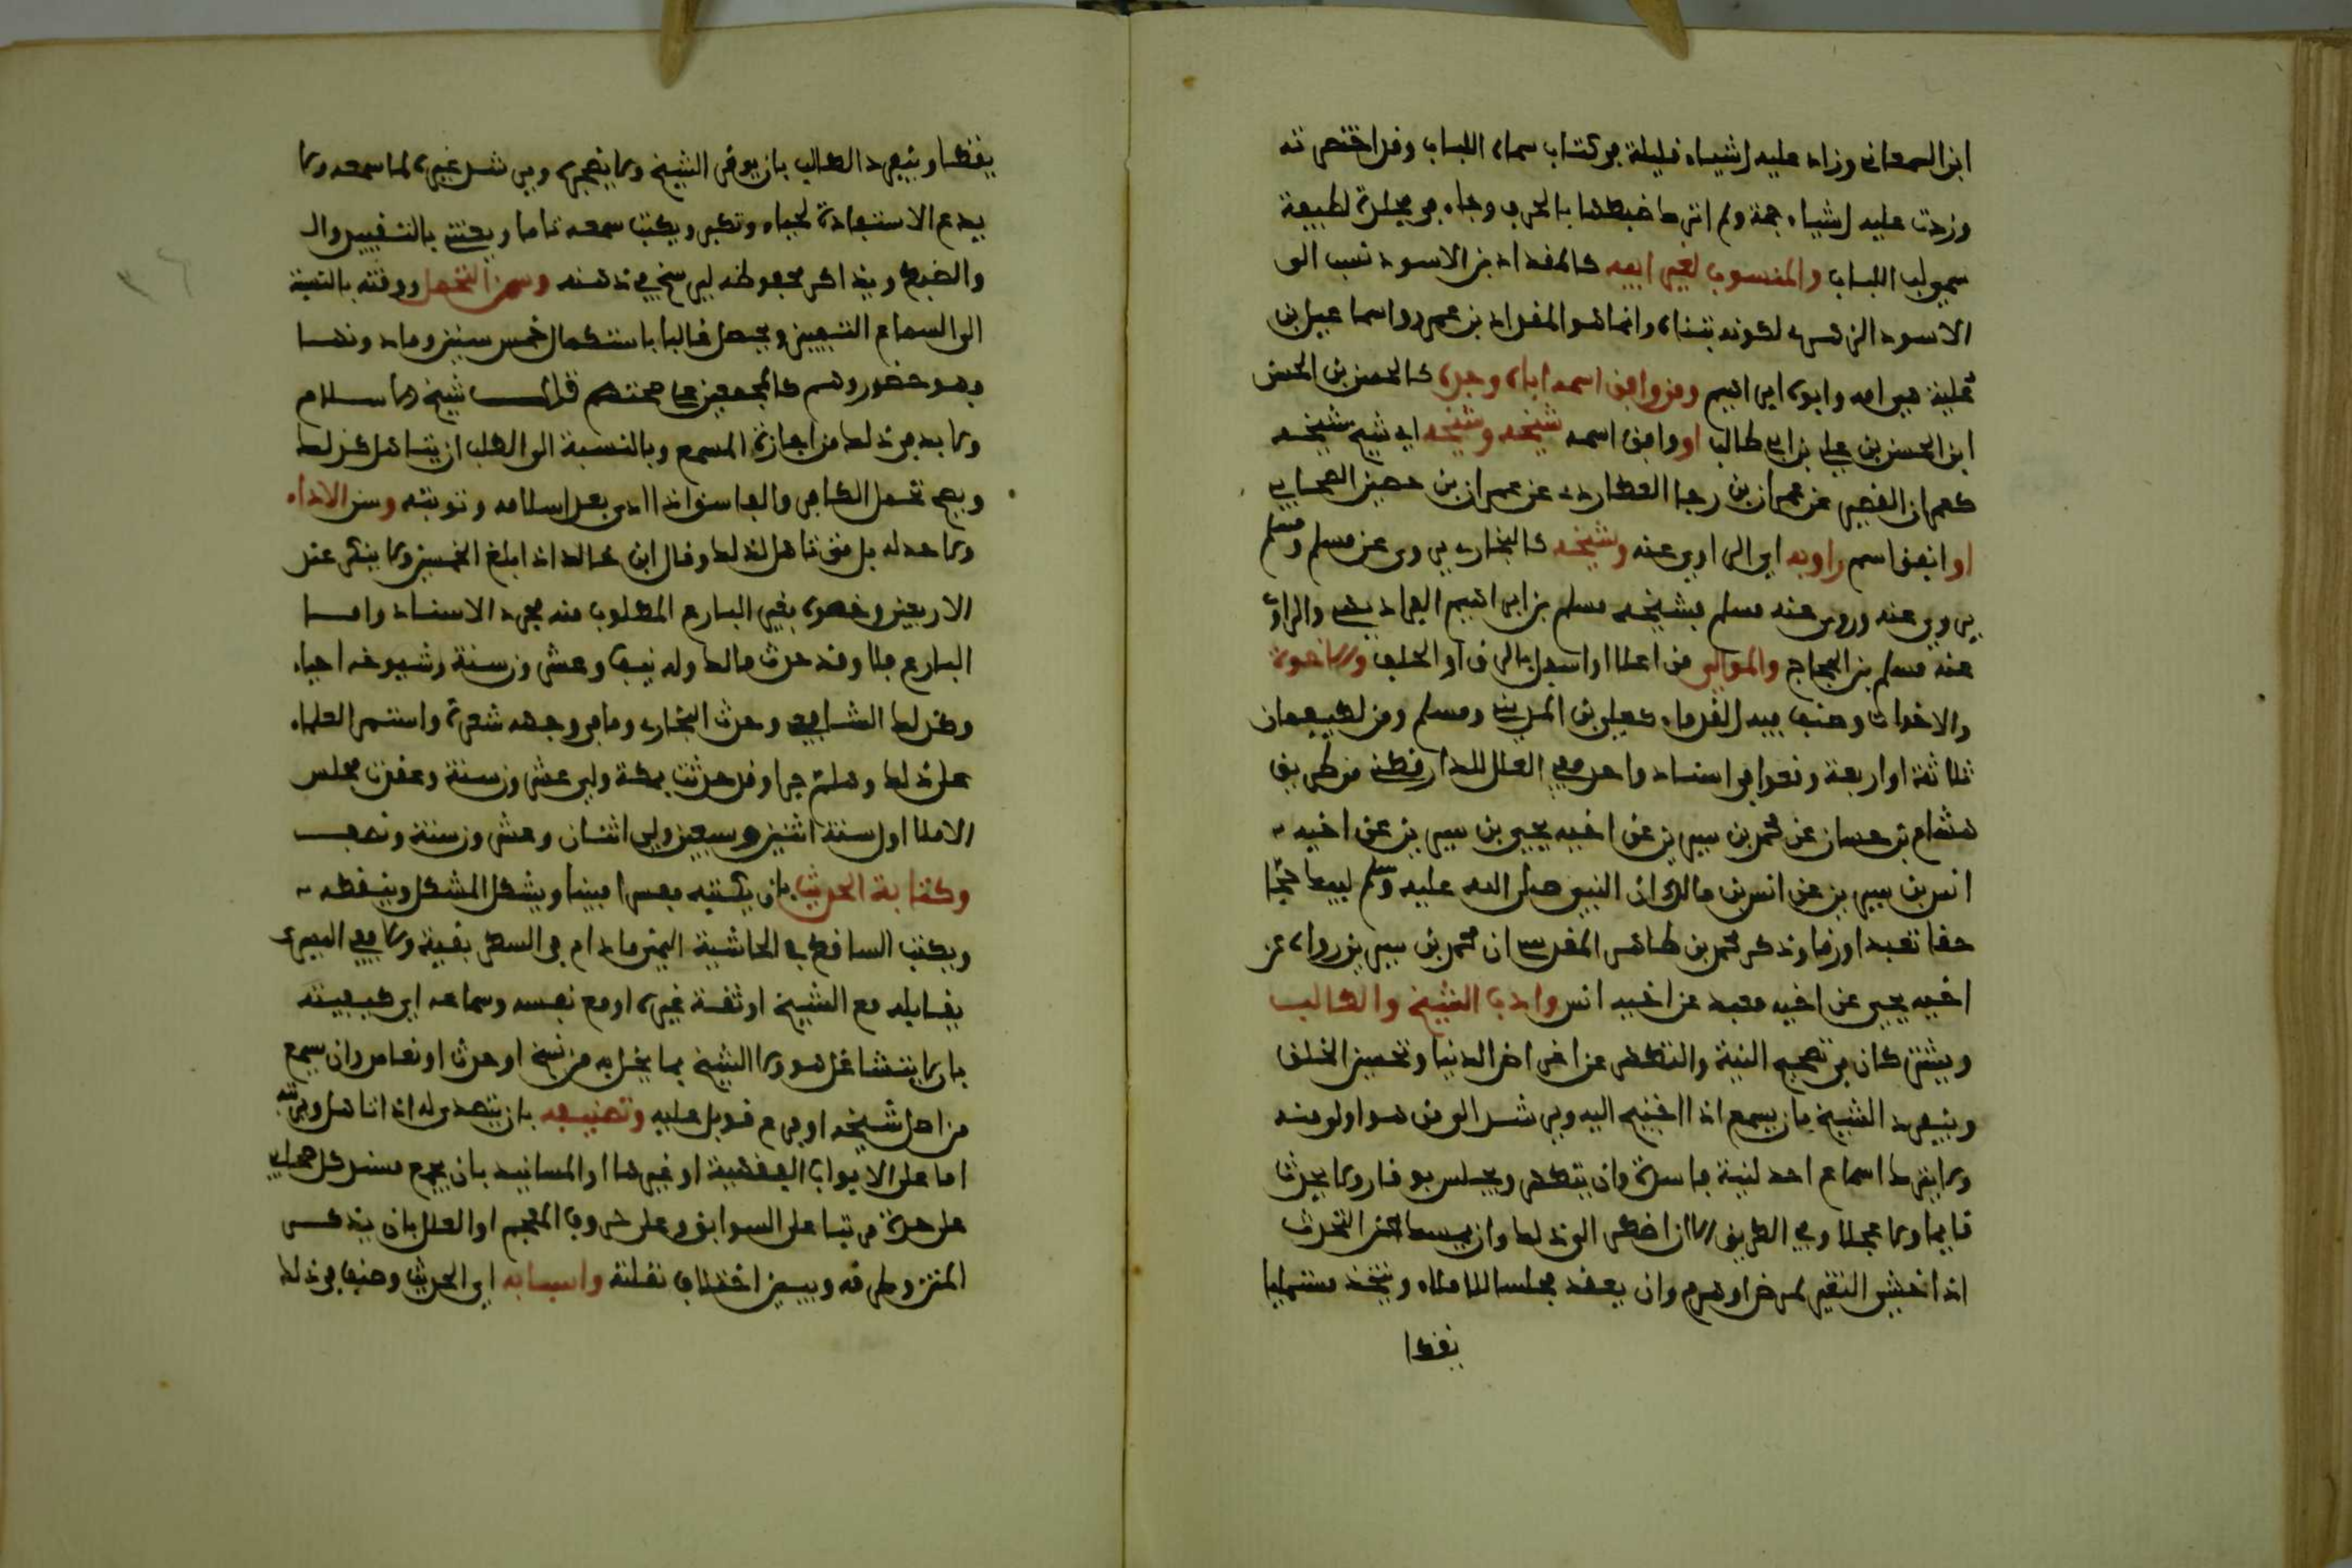 ابن السمعانى وزاد عليه اشياء قليلة في كتاب سماه اللباب وقد اختصرته
وزدت عليه اشياء جمة ولم اترك ضبطها بالحرف وجاء في مجلدة لطيفة
سمي لب اللباب والمنسوب لغير ابيه كالمقداد بن الاسود نسب الى
الاسود الزهري لكونه تبناه وانما هو المقداد بن عمرو واسماعيل بن
علية هي امه وابوه ابراهيم ومن وافق اسمه اباه وجده كالحسن بن الحسن
ابن الحسن بن علي بن ابي طالب او وافق اسمه شيخه وشيخه اي شيخ شيخه
كعمران القصير عن عمران بن رجا العطاردي عن عمران بن حصين الصحابي
او اتفق اسم راويه اي الراوي عنه وشيخه كالبخاري يروي عن مسلم ومسلم
يروي عنه وروى عنه مسلم فشيخه مسلم بن ابراهيم الفراديسي والراوي
عنه مسلم بن الحجاج والموالي من اعلا او اسفل بالرق او الحلف والاخوة
والاخوات وصنف فيه القدماء كعلي بن المديني ومسلم ومن لطيفه ان
ثلاثة او اربعة وقعوا في اسناد واحد ففي العلل للدارقطني من طريق
هشام بن حسان عن محمد بن سيرين عن اخيه يحيى بن سيرين عن اخيه
انس بن سيرين عن انس بن مالك ان النبي صلى الله عليه وسلم لبيك حجا
حقا تعبدا ورقا وذكر محمد بن طاهر المقدسي ان محمد بن سيرين رواه عن
اخيه يحيى عن اخيه معبد عن اخيه انس واداب الشيخ والطالب
ويشتركان في تصحيح النية والتطهر عن اغراض الدنيا وتحسين الخلق
وينفرد الشيخ بان يسمع اذا احتيج اليه ويرشد الى من هو اولى منه
ولا يترك اسماع احد لنية فاسدة وان يتطهر ويجلس بوقار ولا يحدث
قايما ولا عجلا وفي الطريق الا ان اضطر الى ذلك وان يمسك عن التحدث
اذا خشي التغير لمرض او هرم وان يعقد مجلسا للاملاء ويتخذ مستمليا
يقظا
يقظا وينفرد الطالب بان يوقر الشيخ ولا يضجره ويرشد غيره لما سمعه ولا
يدع الاستفادة لحياء وتكبر ويكتب سمعه تاما ويعتني بالتقييد وال
والضبط ويذاكر بمحفوظه ليرسخ في ذهنه وسن التحمل ووقته بالنسبة
الى السماع التمييز ويحصل غالبا باستكمال خمس سنين وما دونها
فهو حضور وهم كالمجمعين على صحته قال شيخ الاسلام
ولا بد في ذلك من اجازة المسمع وبالنسبة الى الطلب ان يتاهل لذلك
ويصح تحمل الكافر والفاسق اذا ادى بعد اسلامه وتوبته وسن الاداء
ولا حد له بل متى تاهل لذلك وقال ابن خلاد اذا بلغ الخمسين ولا ينكر عند
الاربعين وخصوه بغير البارع المطلوب منه مجرد الاسناد واما
البارع فلا وقد حدث مالك وله نيف وعشرون سنة وشيوخه احياء
وكذلك الشافعي وحدث البخاري وما في وجهه شعرة واستمر العلماء
على ذلك وهلم جرا وقد حدثت بمكة ولي عشرون سنة وعقدت مجلس
الاملا اول سنة اثنين وسبعين ولي اثنان وعشرون سنة ونصف
وكتابة الحديث بان يكتبه مفسرا مبينا ويشكل المشكل وينقطه
ويكتب الساقط في الحاشية اليمنى ما دام في السطر بقية والا ففي اليسرى
يقابله مع الشيخ او ثقة غيره او مع نفسه وسماعه اي كيفيته
بان لا يتشاغل هو ولا الشيخ بما يخل به من نسخ او حديث او نعاس وان يسمع
من اصل شيخه او فرع قوبل عليه وتصنيفه بان يتصدى له اذا تاهل ويرتبه
اما على الابواب الفقهية او غيرها او المسانيد بان يجمع مسند كل صحابي
على حدة مرتبا على السوابق وعلى حروف المعجم او العلل بان يذكر
المتن وطرقه ويبين اختلاف نقلته واسبابه اي الحديث وصنف في ذلك